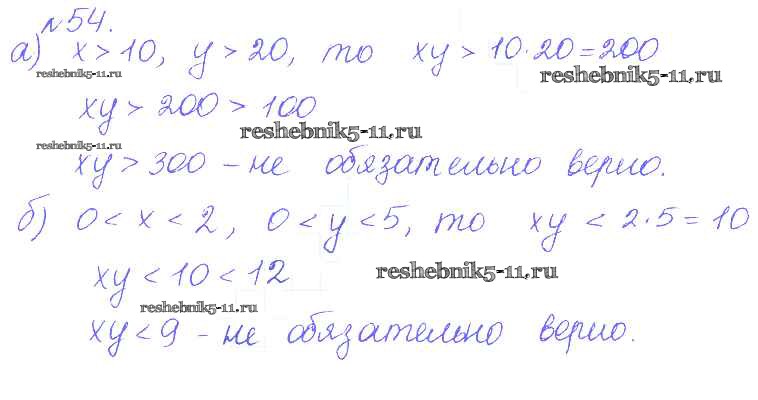 №54.
а) x > 10, y > 20, то xy > 10·20 = 200
reshebnik5-11.ru reshebnik5-11.ru
xy > 200 > 100
reshebnik5-11.ru
reshebnik5-11.ru
xy > 300 – не обязательно верно.
б) 0 < x < 2, 0 < y < 5, то xy < 2·5 = 10
xy < 10 < 12
reshebnik5-11.ru
reshebnik5-11.ru
xy < 9 – не обязательно верно.